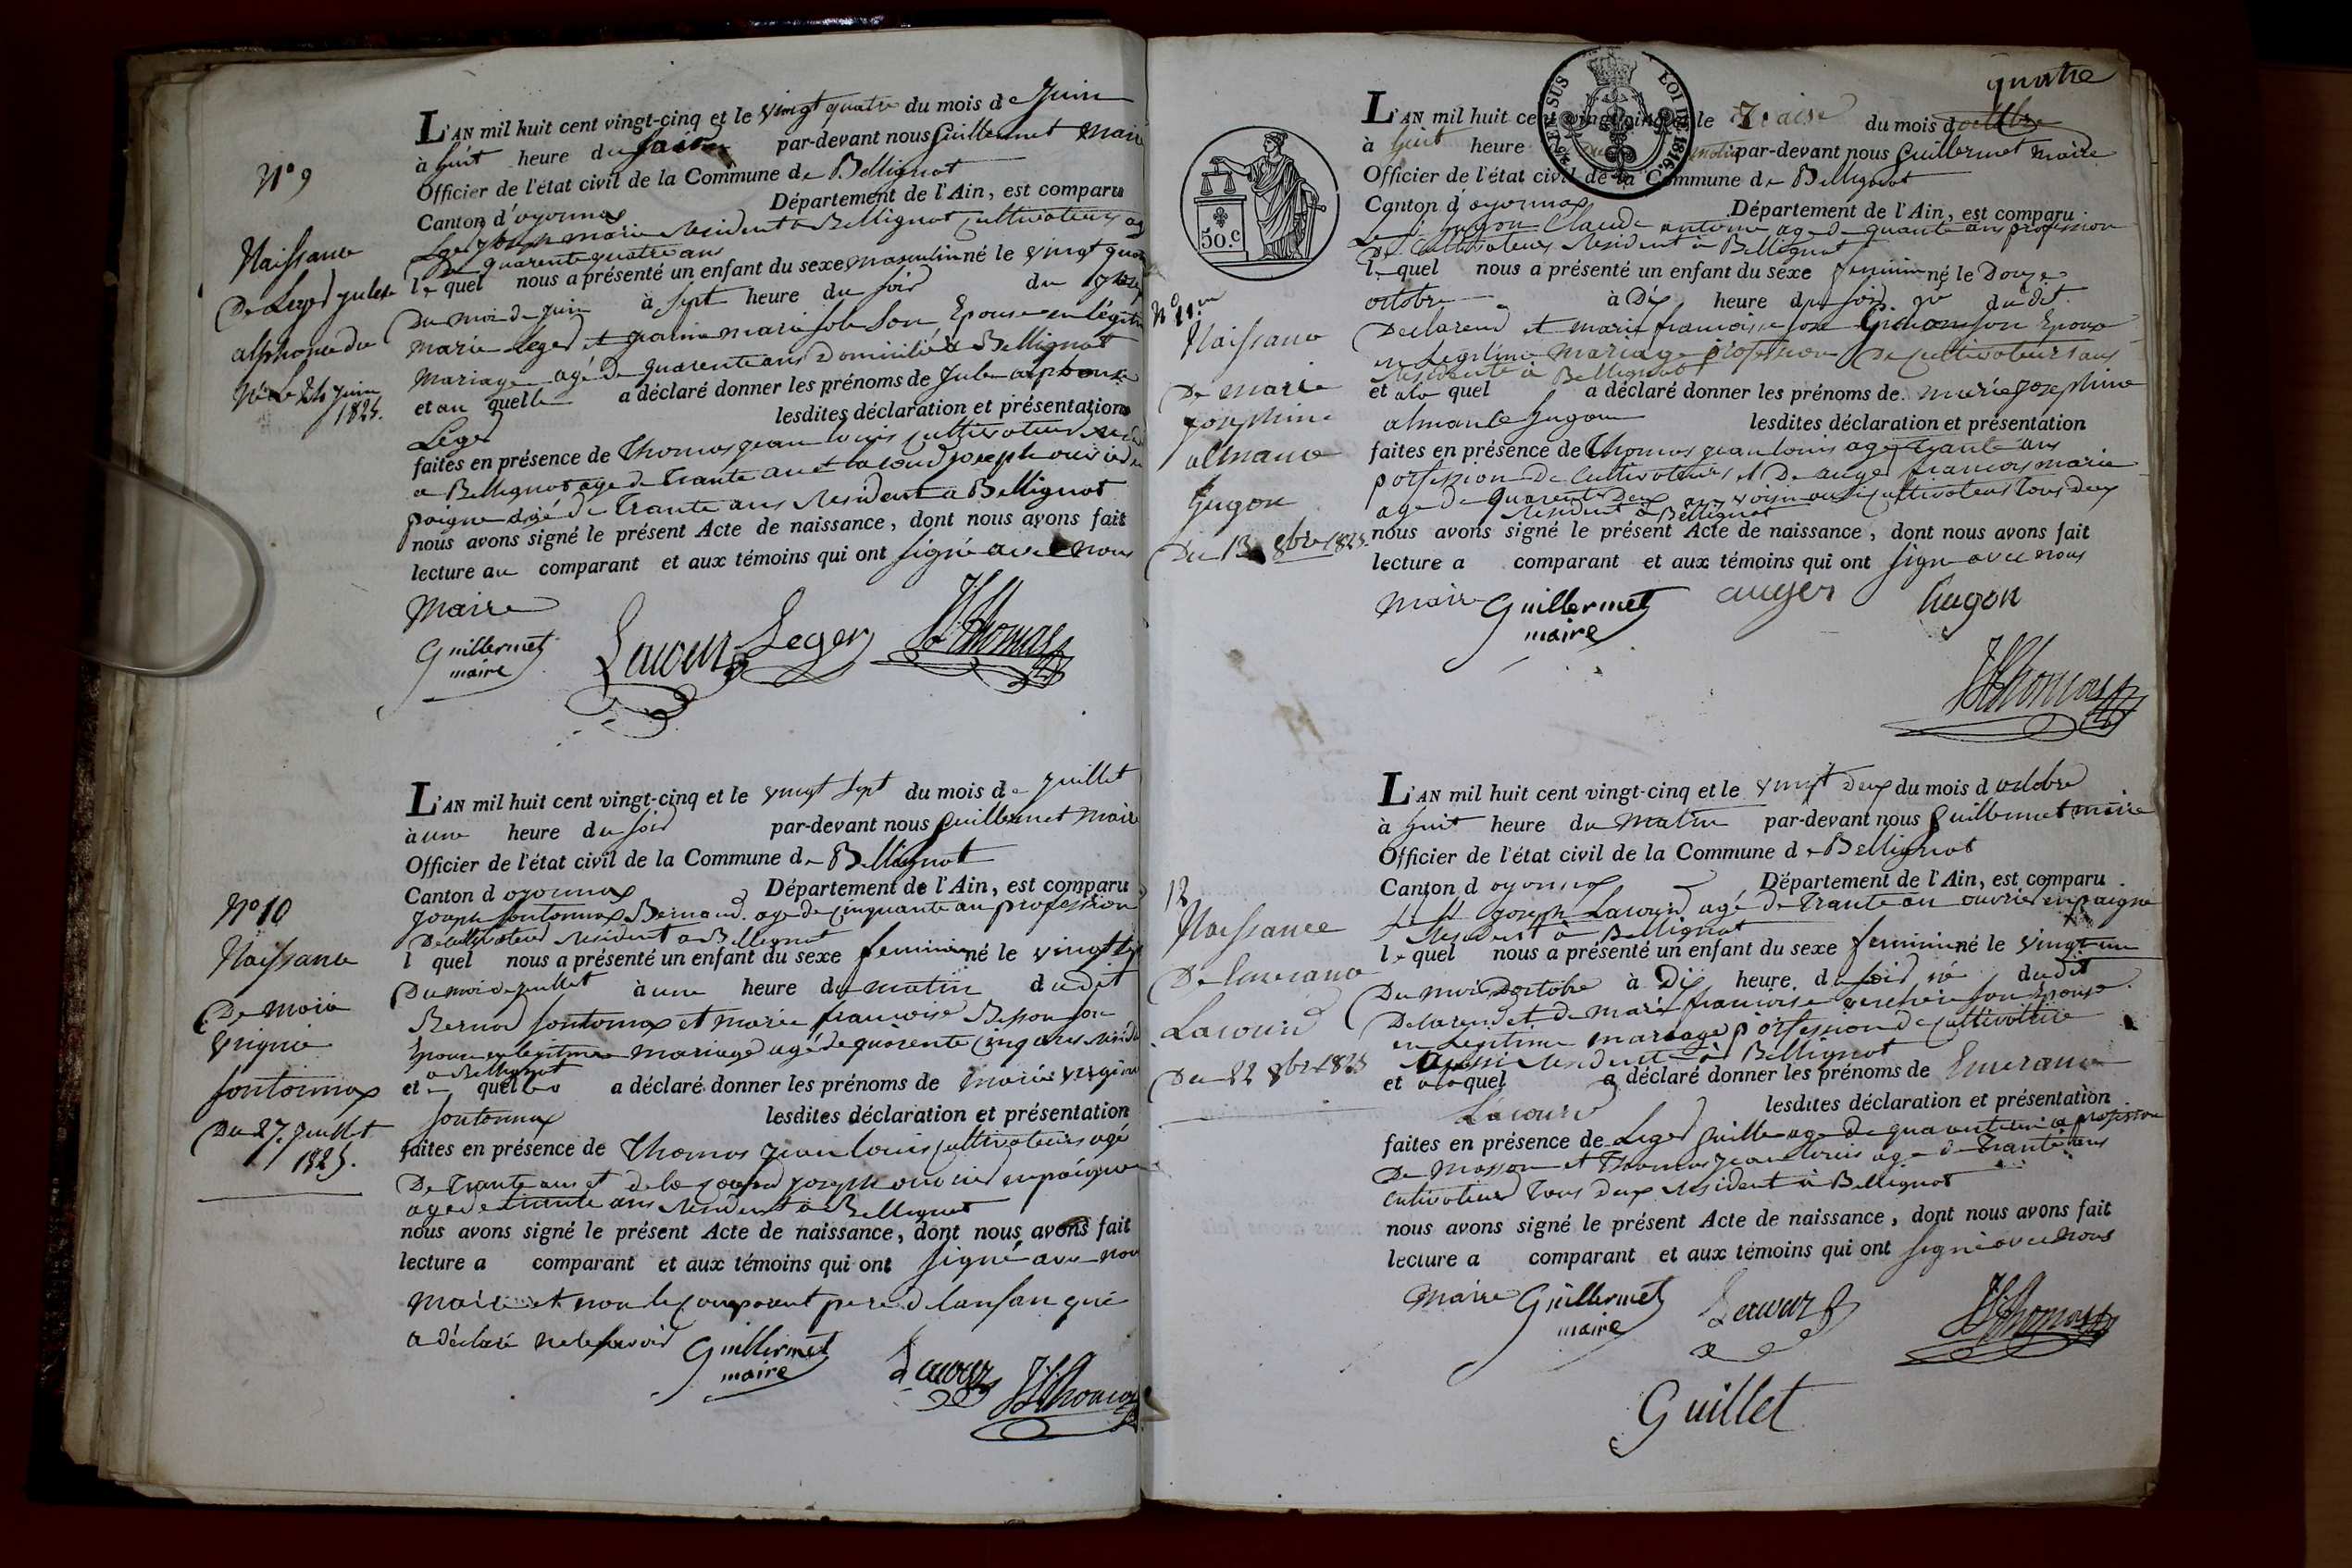 N° 9
Naissance
De Leger jules
alphonse du
Né Le 24 juin
1825.
L'AN mil huit cent vingt-cinq et le vingt quatre du mois de juin
à huit heure du soir par-devant nous Guillermet Maire
Officier de l'état civil de la Commune de Bellignat
Canton d'oyonnax Département de l'Ain, est comparu
Leger joseph marie résident à Bellignat cultivateur
De quarente quatre ans
le quel nous a présenté un enfant du sexe masculin né le vingt
Du mois de juin à sept heure du soir du
marie Leger et son Epouse en légit
Mariage agé de quarente ans Domicilié à Bellignat
et au quelle a déclaré donner les prénoms de Jule alphonse
Leger lesdites déclaration et présentation
faites en présence de Thomas jean louis cultivateur
a Bellignat age de Trante an et Lacour joseph ouvrier
paigne agé de Trante ans résident a Bellignat
nous avons signé le présent Acte de naissance, dont nous avons fait
lecture au comparant et aux témoins qui ont signé avec nous
Maire
Guillermet
maire
Lacour Leger JLThomas
N° 10
Naissance
De Marie
Virginie
fontonnax
Du 27 juillet
1825.
L'AN mil huit cent vingt-cinq et le vingt sept du mois de juillet
à une heure du soir par-devant nous Guillermet Maire
Officier de l'état civil de la Commune de Bellignat
Canton d oyonnax Département de l'Ain, est comparu
joseph fontonnax Bernard age de cinquante an profession
De cultivateur résident a Bellignat
l quel nous a présenté un enfant du sexe feminin né le vingt
Du moi de juillet à une heure du matin dudit
Bernard fontonnax et marie francoise
Epouse en legitime mariage agé de quarente cinq ans
a Bellignat
et quel a déclaré donner les prénoms de marie virginie
fontonnax lesdites déclaration et présentation
faites en présence de Thomas jean louis cultivateur agé
De Trante ans et de la joseph ouvrier en paigne
age de trante ans résident à Bellignat
nous avons signé le présent Acte de naissance, dont nous avons fait
lecture a comparant et aux témoins qui ont signé avec nou
Maire et non le comparent pere d lanfan qui
a déclaré ne le savoir
Guillermet
maire
Lacour JLThomas
quatre
50.C
LOI DE 1816.
EN SUS
N° 11
Naissance
De marie
josephine
almance
hugon
Du 13 8bre 1825
L'AN mil huit cent vingt-cinq et le Traise du mois d octobre
à huit heure du matin par-devant nous Guillermet Maire
Officier de l'état civil de la Commune de Bellignat
Canton d oyonnax Département de l'Ain, est comparu
Le S. hugon Claude antoine age de quarante ans profession
De Cultivateur résident à Bellignat
le quel nous a présenté un enfant du sexe feminin né le Douze
octobre à Dix heure du soir né dudit
Declarend et marie francoise son Epouse
en Legitime mariage profession De cultivateur
résidente à Bellignat
et a la quel a déclaré donner les prénoms de marie josephine
almance hugon lesdites déclaration et présentation
faites en présence de Thomas jean louis age trante ans
porfession De Cultivateur et De auger francois marie
age de quarente Deux ans voisin cultivateur tous deux
resident à Bellignat
nous avons signé le présent Acte de naissance, dont nous avons fait
lecture a comparant et aux témoins qui ont signe avec nous
Maire Guillermet auger hugon
maire
JLThomas
12
Naissance
De Emerance
Lacour
Du 22 8bre 1825
L'AN mil huit cent vingt-cinq et le vingt deux du mois d octobre
à huit heure du Matin par-devant nous Guillermet Maire
Officier de l'état civil de la Commune de Bellignat
Canton d oyonnax Département de l'Ain, est comparu
Le Sr joseph Lacour agé de Trante an ouvrier en paigne
résident à Bellignat
le quel nous a présenté un enfant du sexe feminin né le vingt un
Du mois Doctobre à Dix heure du soir né dudit
Declarend et de marie francoise son Epouse
en Legitime mariage porfession de cultivatrice
aussi residente à Bellignat
et a la quel a déclaré donner les prénoms de Emerance
Lacour lesdites déclaration et présentation
faites en présence de Leger Guillet age de profession
De Masson et Thomas jean louis age de Trante ans
cultivateur Tous Deux résident à Bellignat
nous avons signé le présent Acte de naissance, dont nous avons fait
lecture a comparant et aux témoins qui ont signé avec nous
Maire Guillermet Lacour JLThomas
maire
Guillet